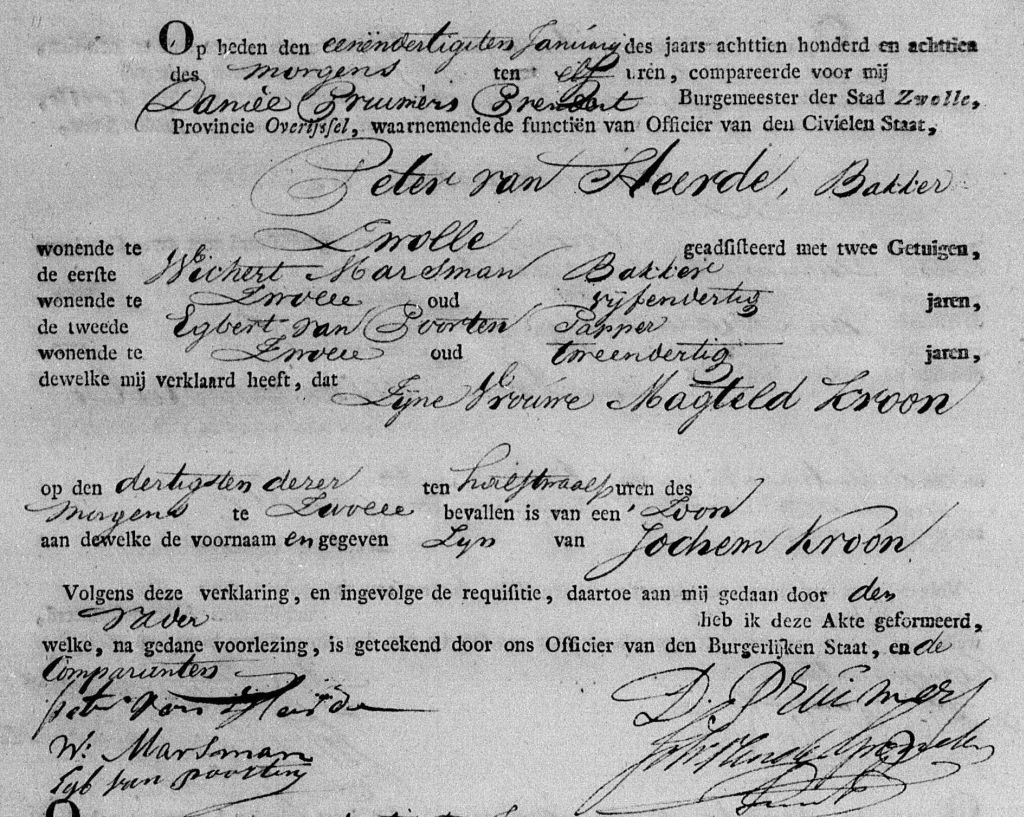 Op heden den eenendertigsten January des jaars achttien honderd en achttien
des morgens ten elf uren, compareerde voor mij
Daniël Pruimers President Burgemeester der Stad Zwolle,
Provincie Overijssel, waarnemende de functiën van Officier van den Civielen Staat,
Peter van Heerde, Bakker
wonende te Zwolle geadsisteerd met twee Getuigen,
de eerste Wichert Marsman Bakker
wonende te Zwolle oud vijfendertig jaren,
de tweede Egbert van Poorten Tapper
wonende te Zwolle oud tweendertig jaren,
dewelke mij verklaard heeft, dat
Zyne Vrouwe Magteld Kroon
op den dertigsten dezer ten uren des
morgens te Zwolle bevallen is van een Zoon
aan dewelke de voornaam en gegeven Zyn van Jochem Kroon
Volgens deze verklaring, en ingevolge de requisitie, daartoe aan mij gedaan door den
Vader heb ik deze Akte geformeerd,
welke, na gedane voorlezing, is geteekend door ons Officier van den Burgerlijken Staat, en de
Comparanten
Petr van Heerde D. Pruimers
W: Marsman
Egb van poorten
O